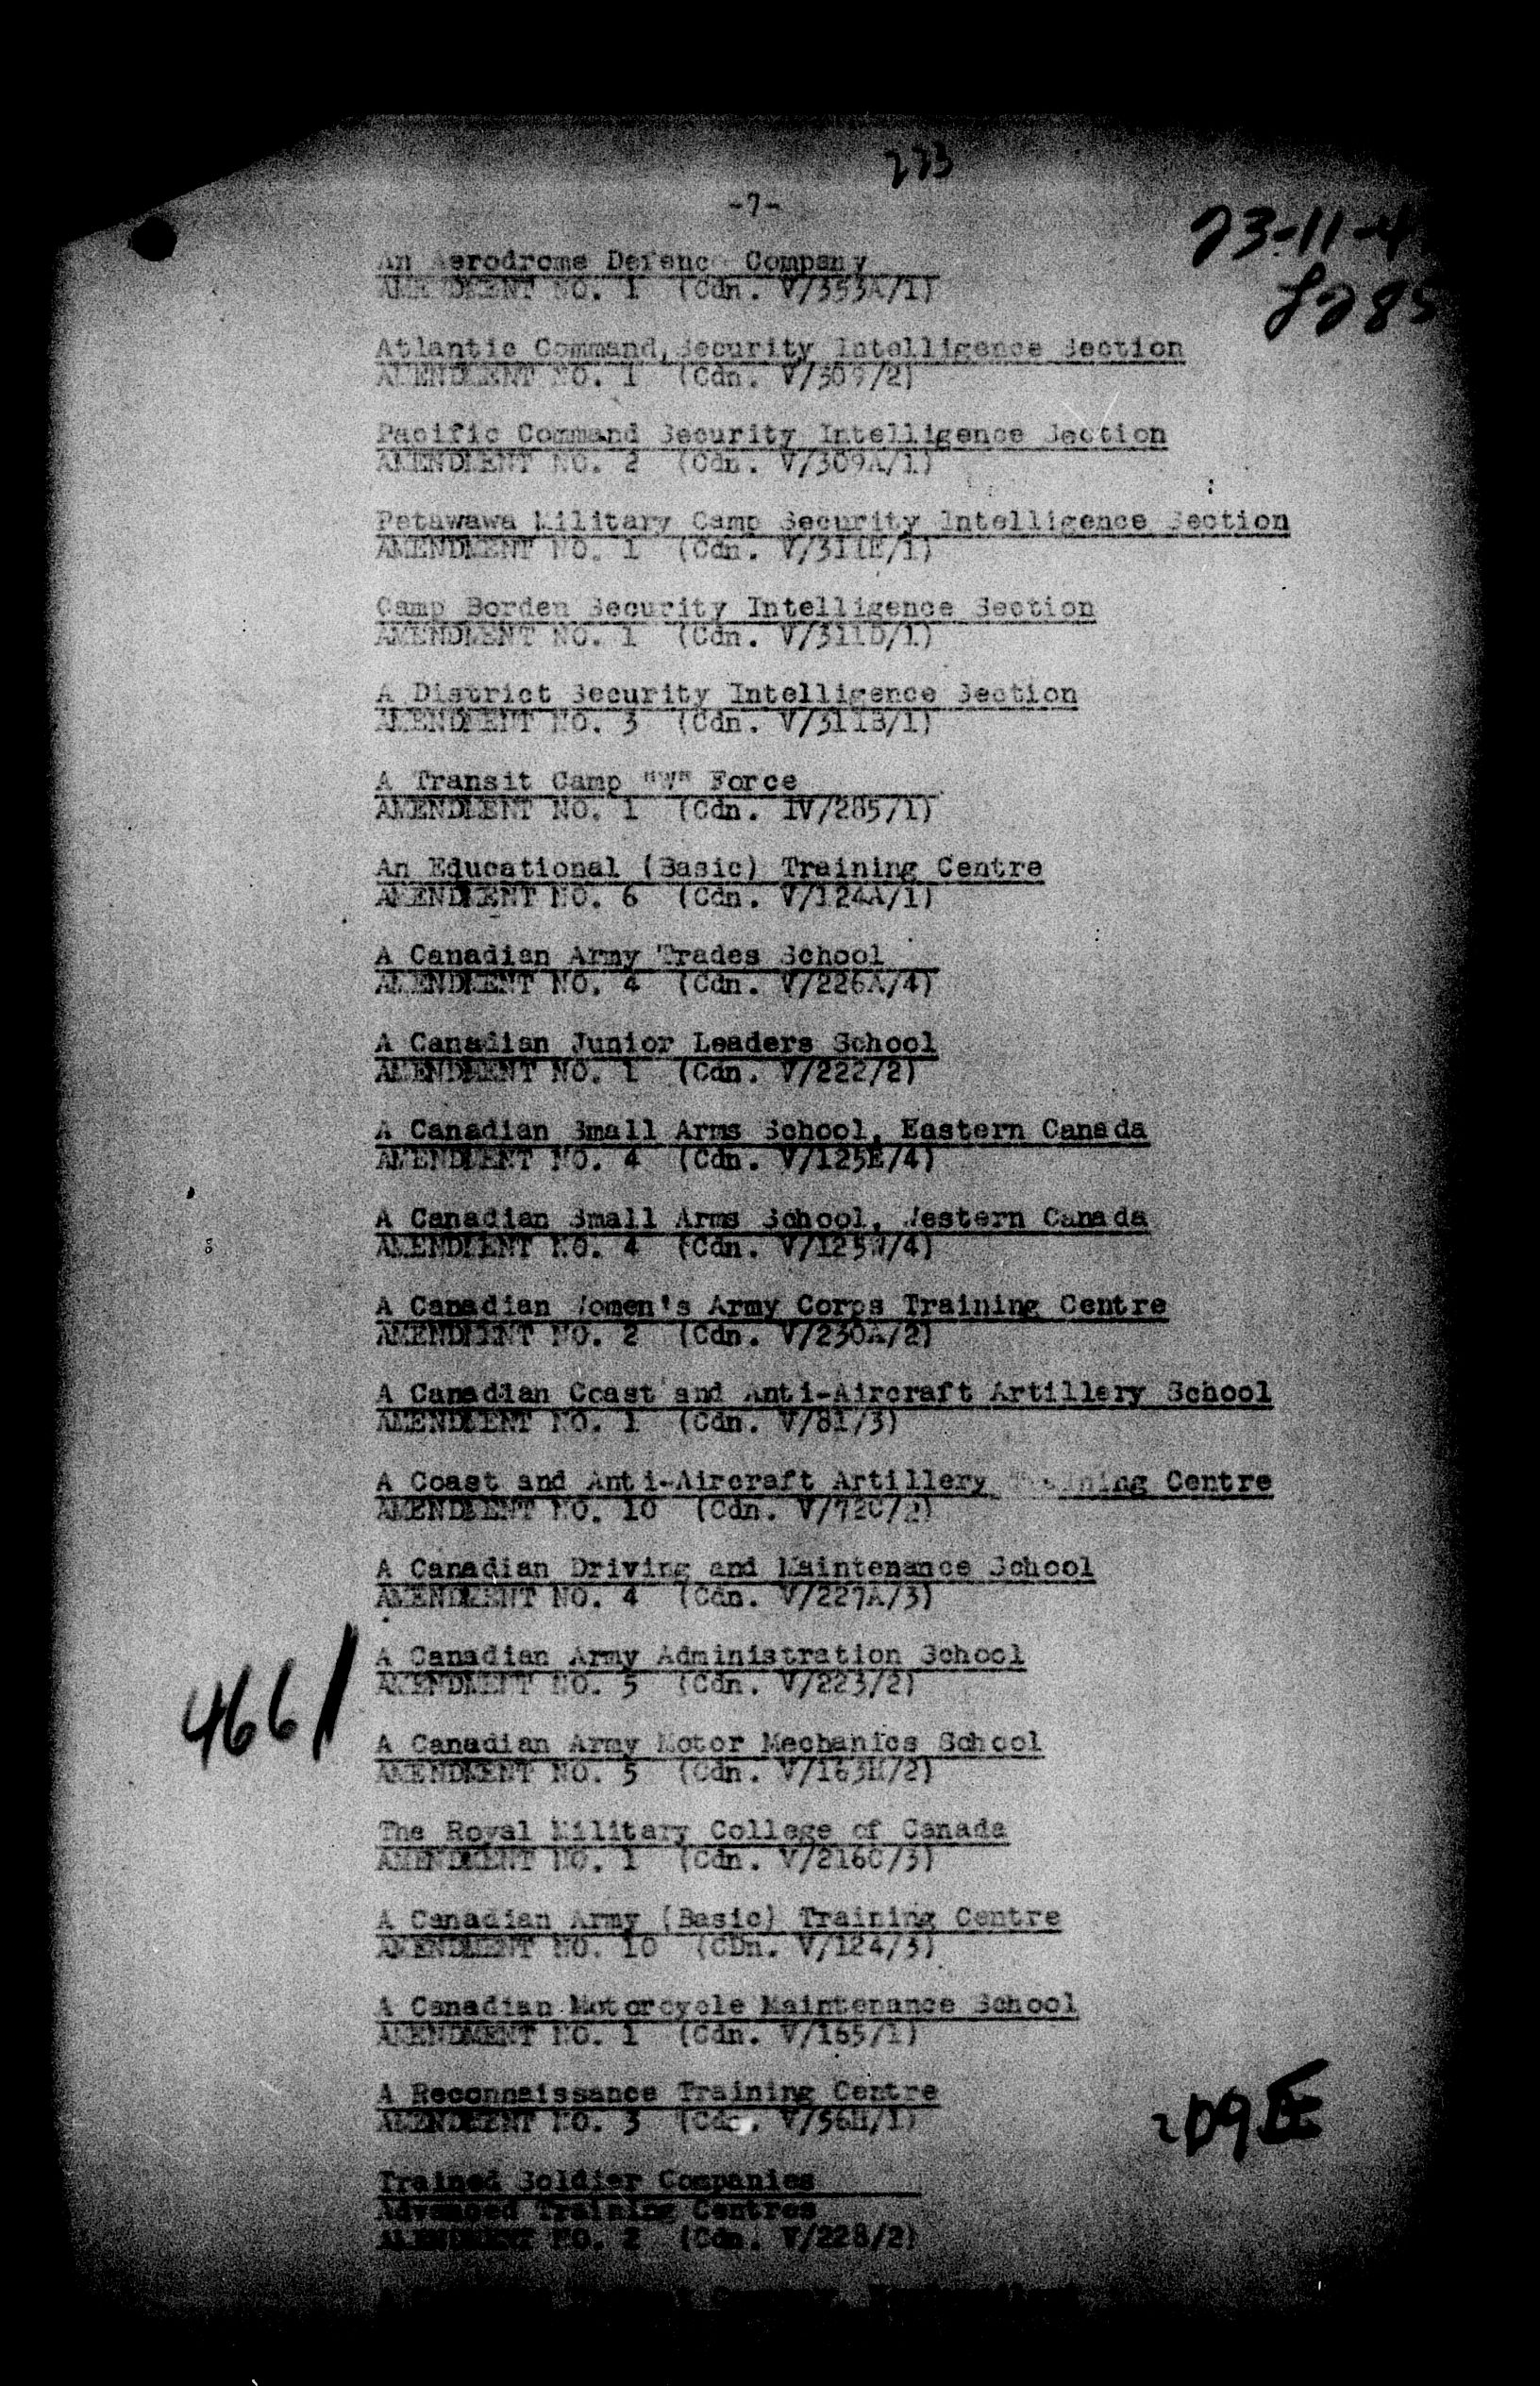 233
-7-
23-11-4
8285
An Aerodrome Defence Company
AMENDMENT NO. 1 (Cdn. V/353A/1)
Atlantic Command, Security Intelligence Section
AMENDMENT NO. 1 (Cdn. V/309/2)
Pacific Command Security Intelligence Section
AMENDMENT NO. 2 (Cdn. V/309A/1)
Petawawa Military Camp Security Intelligence Section
AMENDMENT NO. 1 (Cdn. V/311E/1)
Camp Borden Security Intelligence Section
AMENDMENT NO. 1 (Cdn. V/311D/1)
A District Security Intelligence Section
AMENDMENT NO. 3 (Cdn. V/311B/1)
A Transit Camp "W" Force
AMENDMENT NO. 1 (Cdn. IV/285/1)
An Educational (Basic) Training Centre
AMENDMENT NO. 6 (Cdn. V/124A/1)
A Canadian Army Trades School
AMENDMENT NO. 4 (Cdn. V/226A/4)
A Canadian Junior Leaders School
AMENDMENT NO. 1 (Cdn. V/222/2)
A Canadian Small Arms School, Eastern Canada
AMENDMENT NO. 4 (Cdn. V/125E/4)
A Canadian Small Arms School, Western Canada
AMENDMENT NO. 4 (Cdn. V/125W/4)
A Canadian Women's Army Corps Training Centre
AMENDMENT NO. 2 (Cdn. V/230A/2)
A Canadian Coast and Anti-Aircraft Artillery School
AMENDMENT NO. 1 (Cdn. V/81/3)
A Coast and Anti-Aircraft Artillery Training Centre
AMENDMENT NO. 10 (Cdn. V/72C/2)
A Canadian Driving and Maintenance School
AMENDMENT NO. 4 (Cdn. V/227A/3)
A Canadian Army Administration School
AMENDMENT NO. 5 (Cdn. V/223/2)
4661
A Canadian Army Motor Mechanics School
AMENDMENT NO. 5 (Cdn. V/163H/2)
The Royal Military College of Canada
AMENDMENT NO. 1 (Cdn. V/216C/3)
A Canadian Army (Basic) Training Centre
AMENDMENT NO. 10 (CDn. V/124/3)
A Canadian Motorcycle Maintenance School
AMENDMENT NO. 1 (Cdn. V/165/1)
A Reconnaissance Training Centre
AMENDMENT NO. 3 (Cdn. V/56H/1)
209E
Trained Soldier Companies
Advanced Training Centres
AMENDMENT NO. 2 (Cdn. V/228/2)